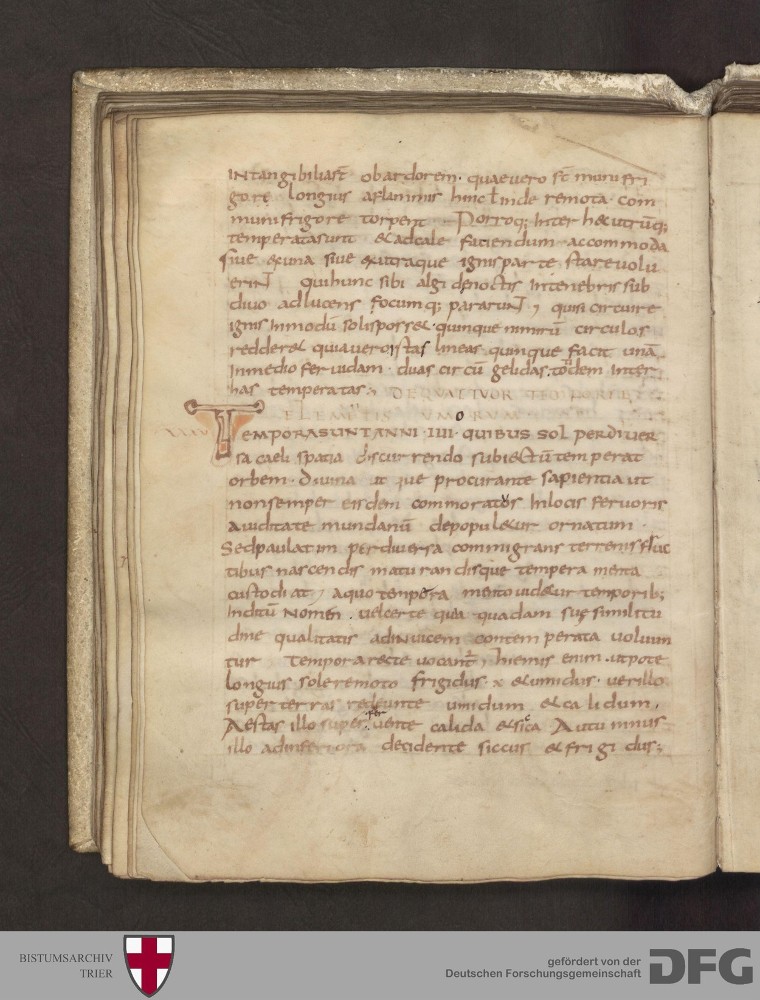 INtangibilia st̄ ob ardorem. quae uero st̄ muni fri
gorę longius a flammis hinc ł inde remota. com
muni frigore torpent Porroq; inter hęc utrūq;
temperata sunt & ad cale faciendum accommoda
siue ex una siue ex utraque ignis parte stare uolu
eriNT qui hunc sibi algidę noctis in tenebris sub
diuo ad lucens focumq; pararuNT, quasi circuire
ignis in modū solis poss&. quinque nimirū circulos
redder& quia uero istas lineas quinque facit unā
in medio feruidam. duas circū gelidas. totidem inter
has temperatas. DE QUATTUOR TEMPORIBUS
ELEMENTIS UMORUM
XXXV TEMPORA SUNT ANNI IIII QUIBUS SOL PER DIVER
sa caeli spatia discurrendo subiectū temperat
orbem. Diuina ut que procurante sapientia ut
non semper eisdem commoratos in locis feruoris
auiditate mundanū depopul&ur ornatum.
Sed paulatim per diuersa commigrans terrenis fruc
tibus nascendis maturandisque temperamenta
custodiat, a quo tempera mento uid&ur temporib;
inditū Nomen. uel certe quia quadam suę similitu
dine qualitatis ad iNuicem contemperata uoluun
tur Tempora recte uocant̄, hiemis enim. utpote
longius sole remoto frigidus x & umidus. uer illo
super terras redeunte umidum & calidum,
Aestas illo super feruente calida & sicca Autumnus
illo ad inferiora decidente siccus & frigidus;
BISTUMSARCHIV
TRIER
gefördert von der
Deutschen Forschungsgemeinschaft
DFG